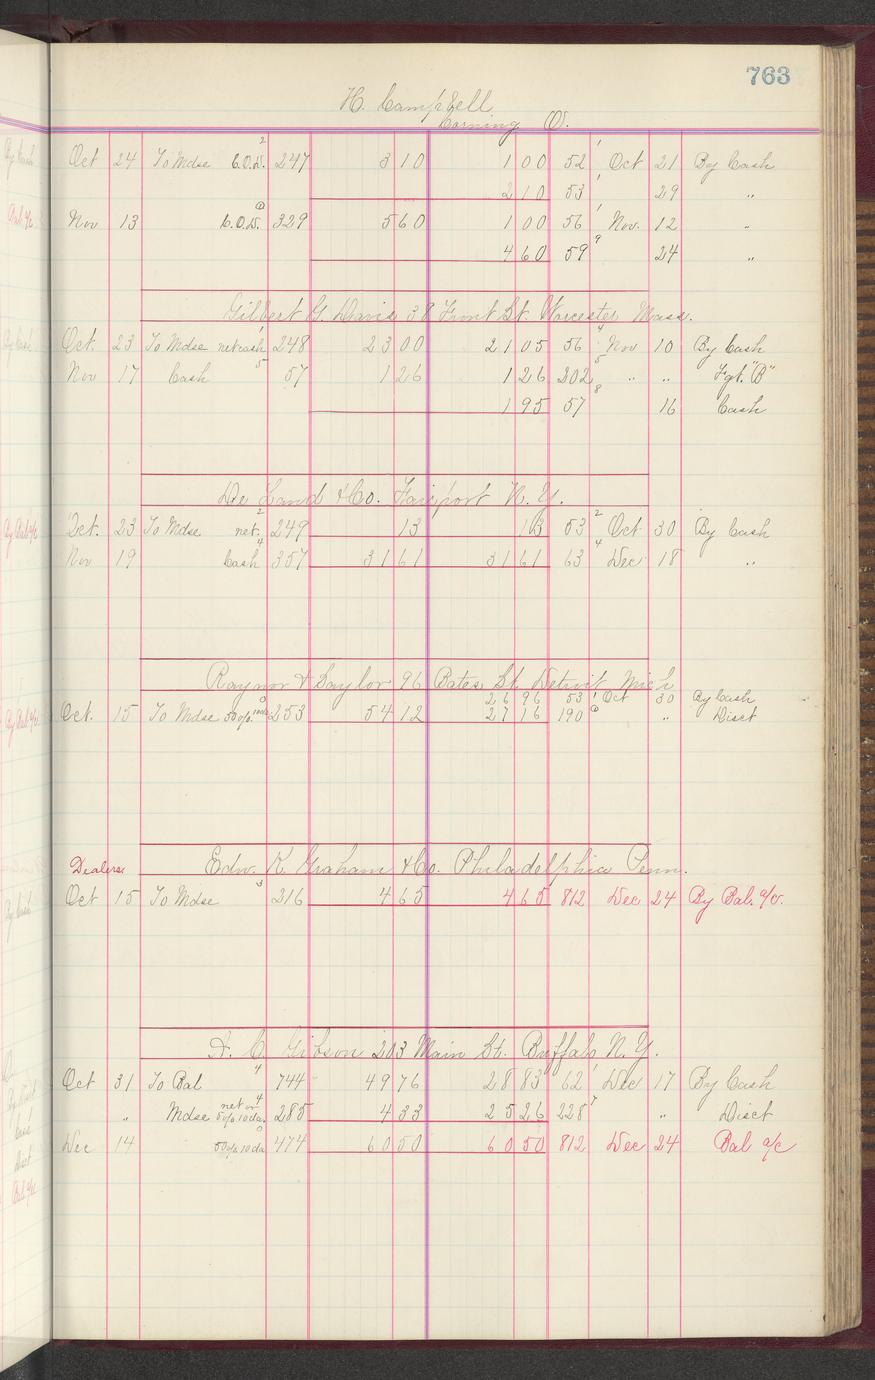 763
H. Campbell
Corning O.
Oct 24 To Mdse C.O.D. 2 247 3 10 1 00 52 1 Oct 21 By Cash
2 10 53 1 29 "
Nov 13 C.O.D. 329 5 60 1 00 56 1 Nov. 12 "
4 60 59 9 24 "
Gilbert G. Davis 38 Front St. Worcester Mass.
Oct. 23 To Mdse net cash 1 248 23 00 21 05 56 4 Nov 10 By Cash
Nov 17 Cash 5 57 1 26 1 26 202 5 " " Fgt. "B"
1 95 57 8 16 Cash
De Land & Co. Fairport N. Y.
Oct. 23 To Mdse net. 2 249 13 13 53 2 Oct 30 By Cash
Nov 19 Cash 4 357 31 61 31 61 63 4 Dec 18 "
Raynor & Saylor 96 Bates St Detroit Mich
26 96 53 1 Oct 30 By Cash
Oct. 15 To Mdse 50% 10 da 253 54 12 27 16 190 " Disct
Dealers Edw. K. Graham & Co. Philadelphia Penn.
Oct 15 To Mdse 3 216 4 65 4 65 812 Dec 24 By Bal. a/c.
A. C. Gibson 203 Main St. Buffalo N. Y.
Oct 31 To Bal 4 744 49 76 28 83 62 1 Dec 17 By Cash
" Mdse net or 50% 10 da. 4 285 4 33 25 26 228 7 " Disct
Dec 14 50% 10 da 474 60 50 60 50 812 Dec 24 Bal a/c